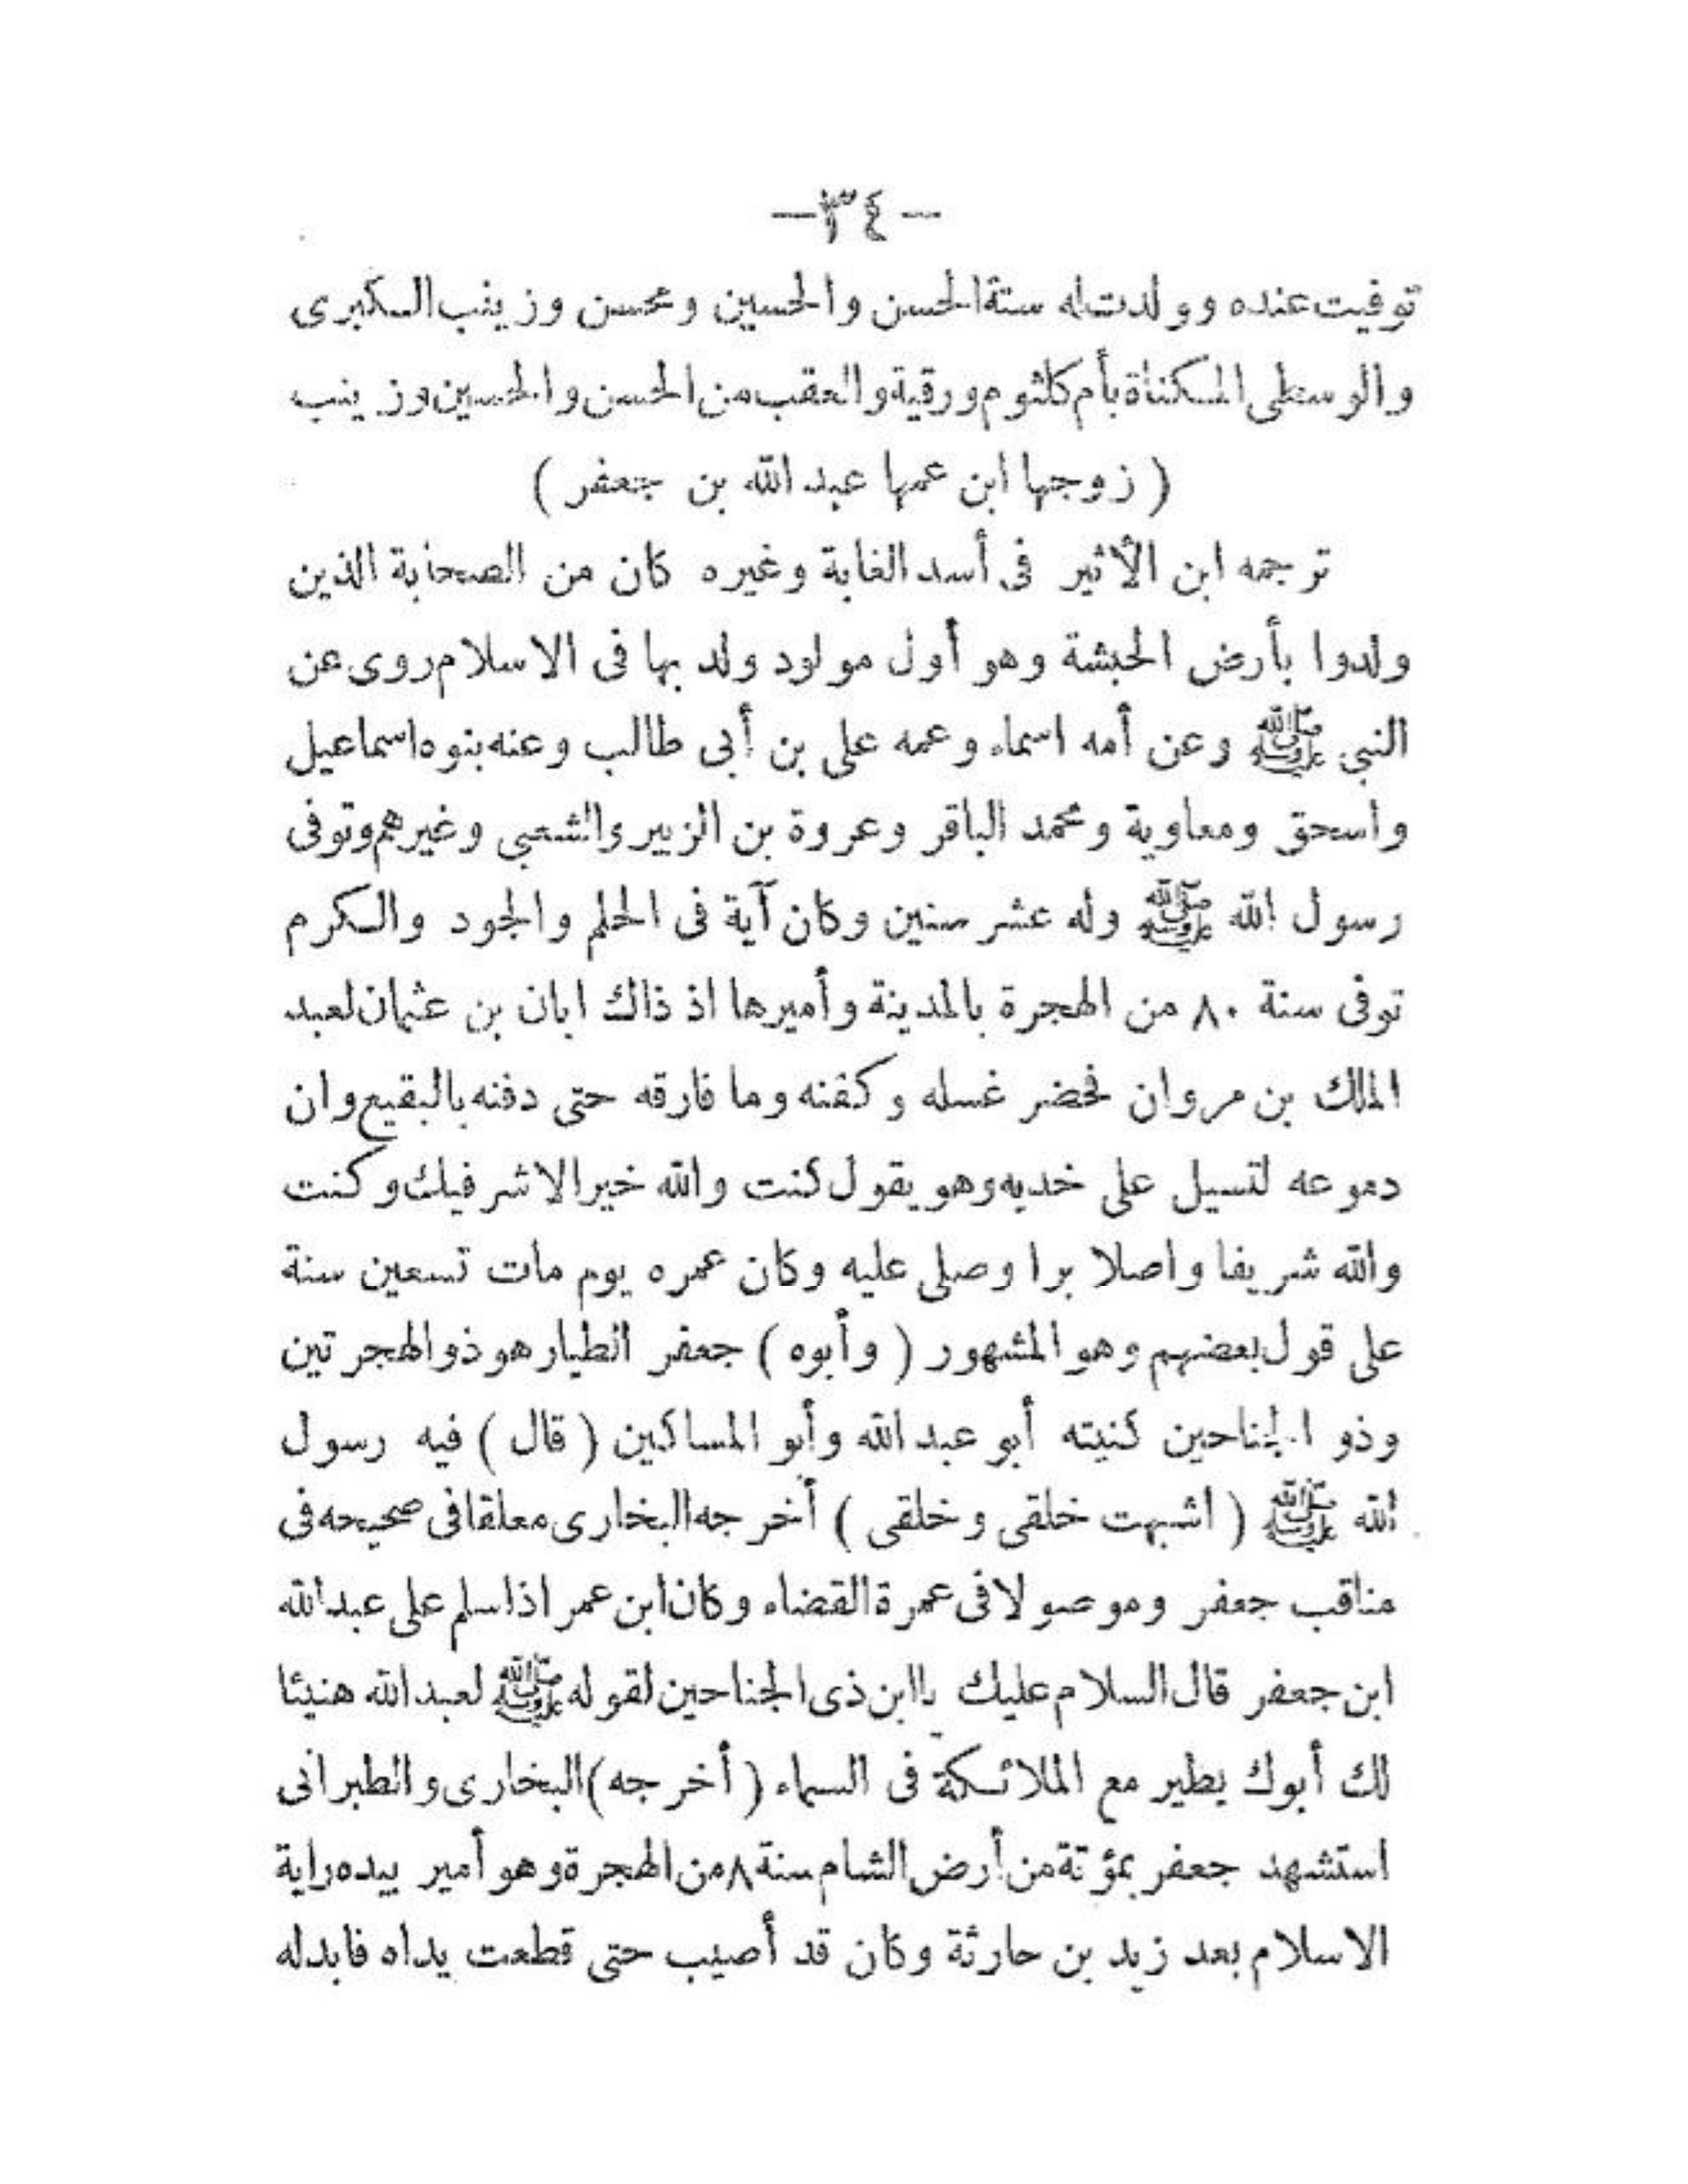 — ٣٤ —
توفيت عنده وولدت له ستة الحسن والحسين ومحسن وزينب الكبرى
والوسطى المكناة بأم كلثوم ورقية والعقب من الحسن والحسين وزينب
( زوجها ابن عمها عبد الله بن جعفر )
ترجمه ابن الأثير فى أسد الغابة وغيره كان من الصحابة الذين
ولدوا بأرض الحبشة وهو أول مولود ولد بها فى الاسلام روى عن
النبى ﷺ وعن أمه اسماء وعمه على بن أبى طالب وعنه بنوه اسماعيل
واسحق ومعاوية ومحمد الباقر وعروة بن الزبير والشعبى وغيرهم وتوفى
رسول الله ﷺ وله عشر سنين وكان آية فى الحلم والجود والكرم
توفى سنة ٨٠ من الهجرة بالمدينة وأميرها اذ ذاك ابان بن عثمان لعبد
الملك بن مروان فحضر غسله وكفنه وما فارقه حتى دفنه بالبقيع وان
دموعه لتسيل على خديه وهو يقول كنت والله خيرا لاشر فيك وكنت
والله شريفا واصلا برا وصلى عليه وكان عمره يوم مات تسعين سنة
على قول بعضهم وهو المشهور ( وأبوه ) جعفر الطيار هو ذو الهجرتين
وذو الجناحين كنيته أبو عبد الله وأبو المساكين ( قال ) فيه رسول
الله ﷺ ( اشبهت خلقى وخلقى ) أخرجه البخارى معلقا فى صحيحه فى
مناقب جعفر وموصولا فى عمرة القضاء وكان ابن عمر اذا سلم على عبد الله
ابن جعفر قال السلام عليك يا ابن ذى الجناحين لقوله ﷺ لعبد الله هنيئا
لك أبوك يطير مع الملائكة فى السماء ( أخرجه ) البخارى والطبرانى
استشهد جعفر بمؤتة من أرض الشام سنة ٨ من الهجرة وهو أمير بيده راية
الاسلام بعد زيد بن حارثة وكان قد أصيب حتى قطعت يداه فابدله